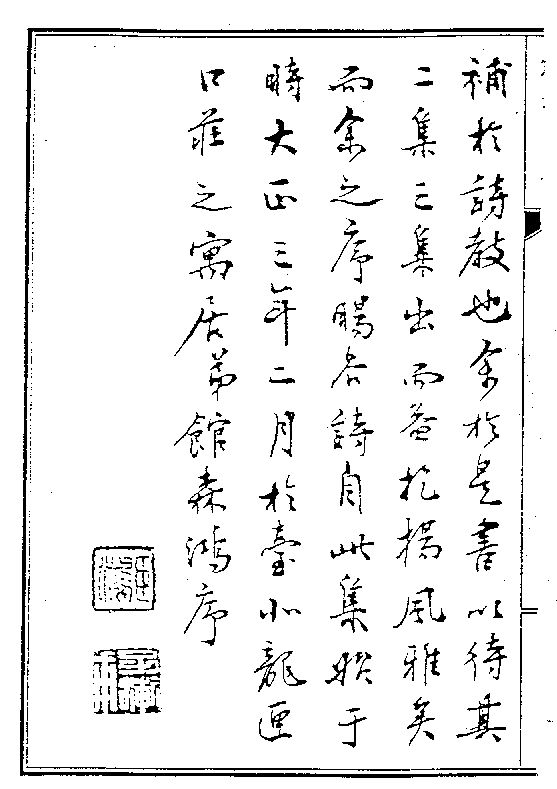 補於詩教也余於是書以待其
二集三集出而益扢揚風雅矣
而余之序暘谷詩自此集始于
時大正三年二月於臺北龍匣
口莊之寓居弟館森鴻序